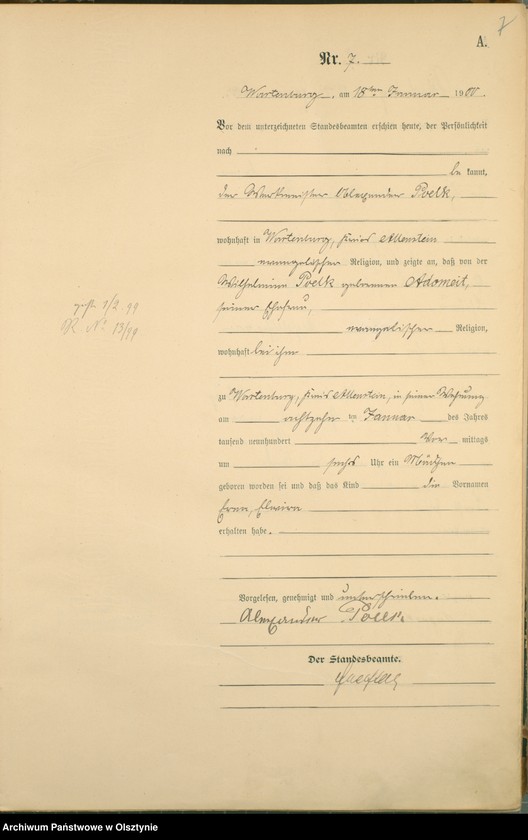 7
A.
Nr. 7.
Wartenburg, am 18ten Januar 1900.
Vor dem unterzeichneten Standesbeamten erschien heute, der Persönlichkeit
nach
be kannt,
der Werkmeister Alexander Poelk,
wohnhaft in Wartenburg, Kreis Allenstein
evangelischer Religion, und zeigte an, daß von der
Wilhelmine Poelk geborenen Adomeit,
seiner Ehefrau,
evangelischer Religion,
wohnhaft bei ihm
zu Wartenburg, Kreis Allenstein, in seiner Wohnung
am achtzehn ten Januar des Jahres
tausend neunhundert Vor mittags
um sechs Uhr ein Mädchen
geboren worden sei und daß das Kind die Vornamen
Erna, Elwira
erhalten habe.
Vorgelesen, genehmigt und unterschrieben.
Alexander Poelk.
Der Standesbeamte.
1/2 99
No 13/99
Archiwum Państwowe w Olsztynie